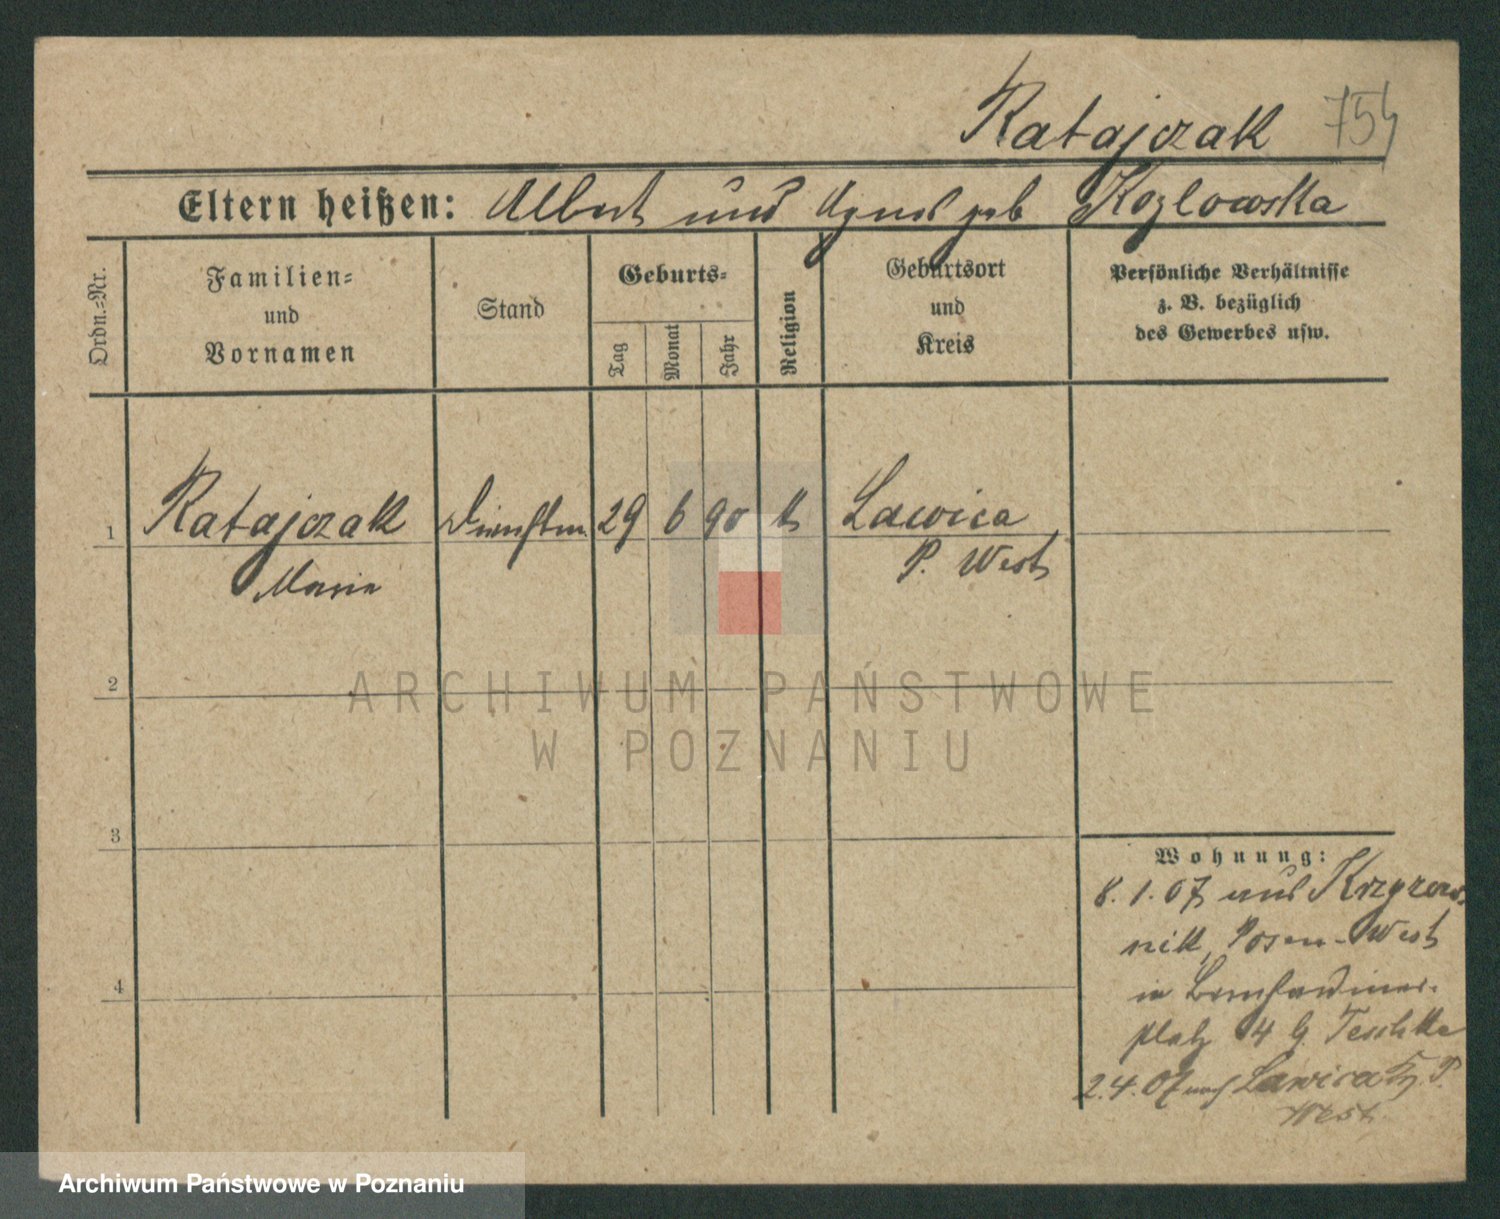 Ratajczak 754
Eltern heißen: Albert und Agnes geb Kozlowska
Ordn.-Nr.
Familien-
und
Vornamen
Stand
Geburts-
Tag
Monat
Jahr
Religion
Geburtsort
und
Kreis
Persönliche Verhältnisse
z. B. bezüglich
des Gewerbes usw.
1 Ratajczak Dienstm. 29 6 90 k Lawica
Marie P. West
2
ARCHIWUM PAŃSTWOWE
W POZNANIU
3
Wohnung:
8.1.07 aus Krzyzow-
nik, Posen-West
in Bernhardiner-
platz 4 b Teschke
4
2.4.07 nach Lawica P.
West
Archiwum Państwowe w Poznaniu